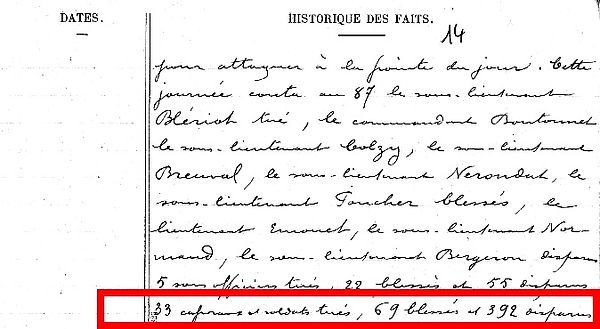 DATES. HISTORIQUE DES FAITS.
14
pour attaquer à la pointe du jour. Cette
journée couta au 87 le sous-lieutenant
Blériot tué, le commandant Boutonnet
le sous-lieutenant Colzy, le sous-lieutenant
Breuval, le sous-lieutenant Nerondat, le
sous-lieutenant Foucher blessés, le
lieutenant Emonet, le sous-lieutenant Nor-
mand, le sous-lieutenant Bergeron disparus
5 sous officiers tués, 22 blessés et 55 disparus
33 caporaux et soldats tués, 69 blessés et 392 disparus